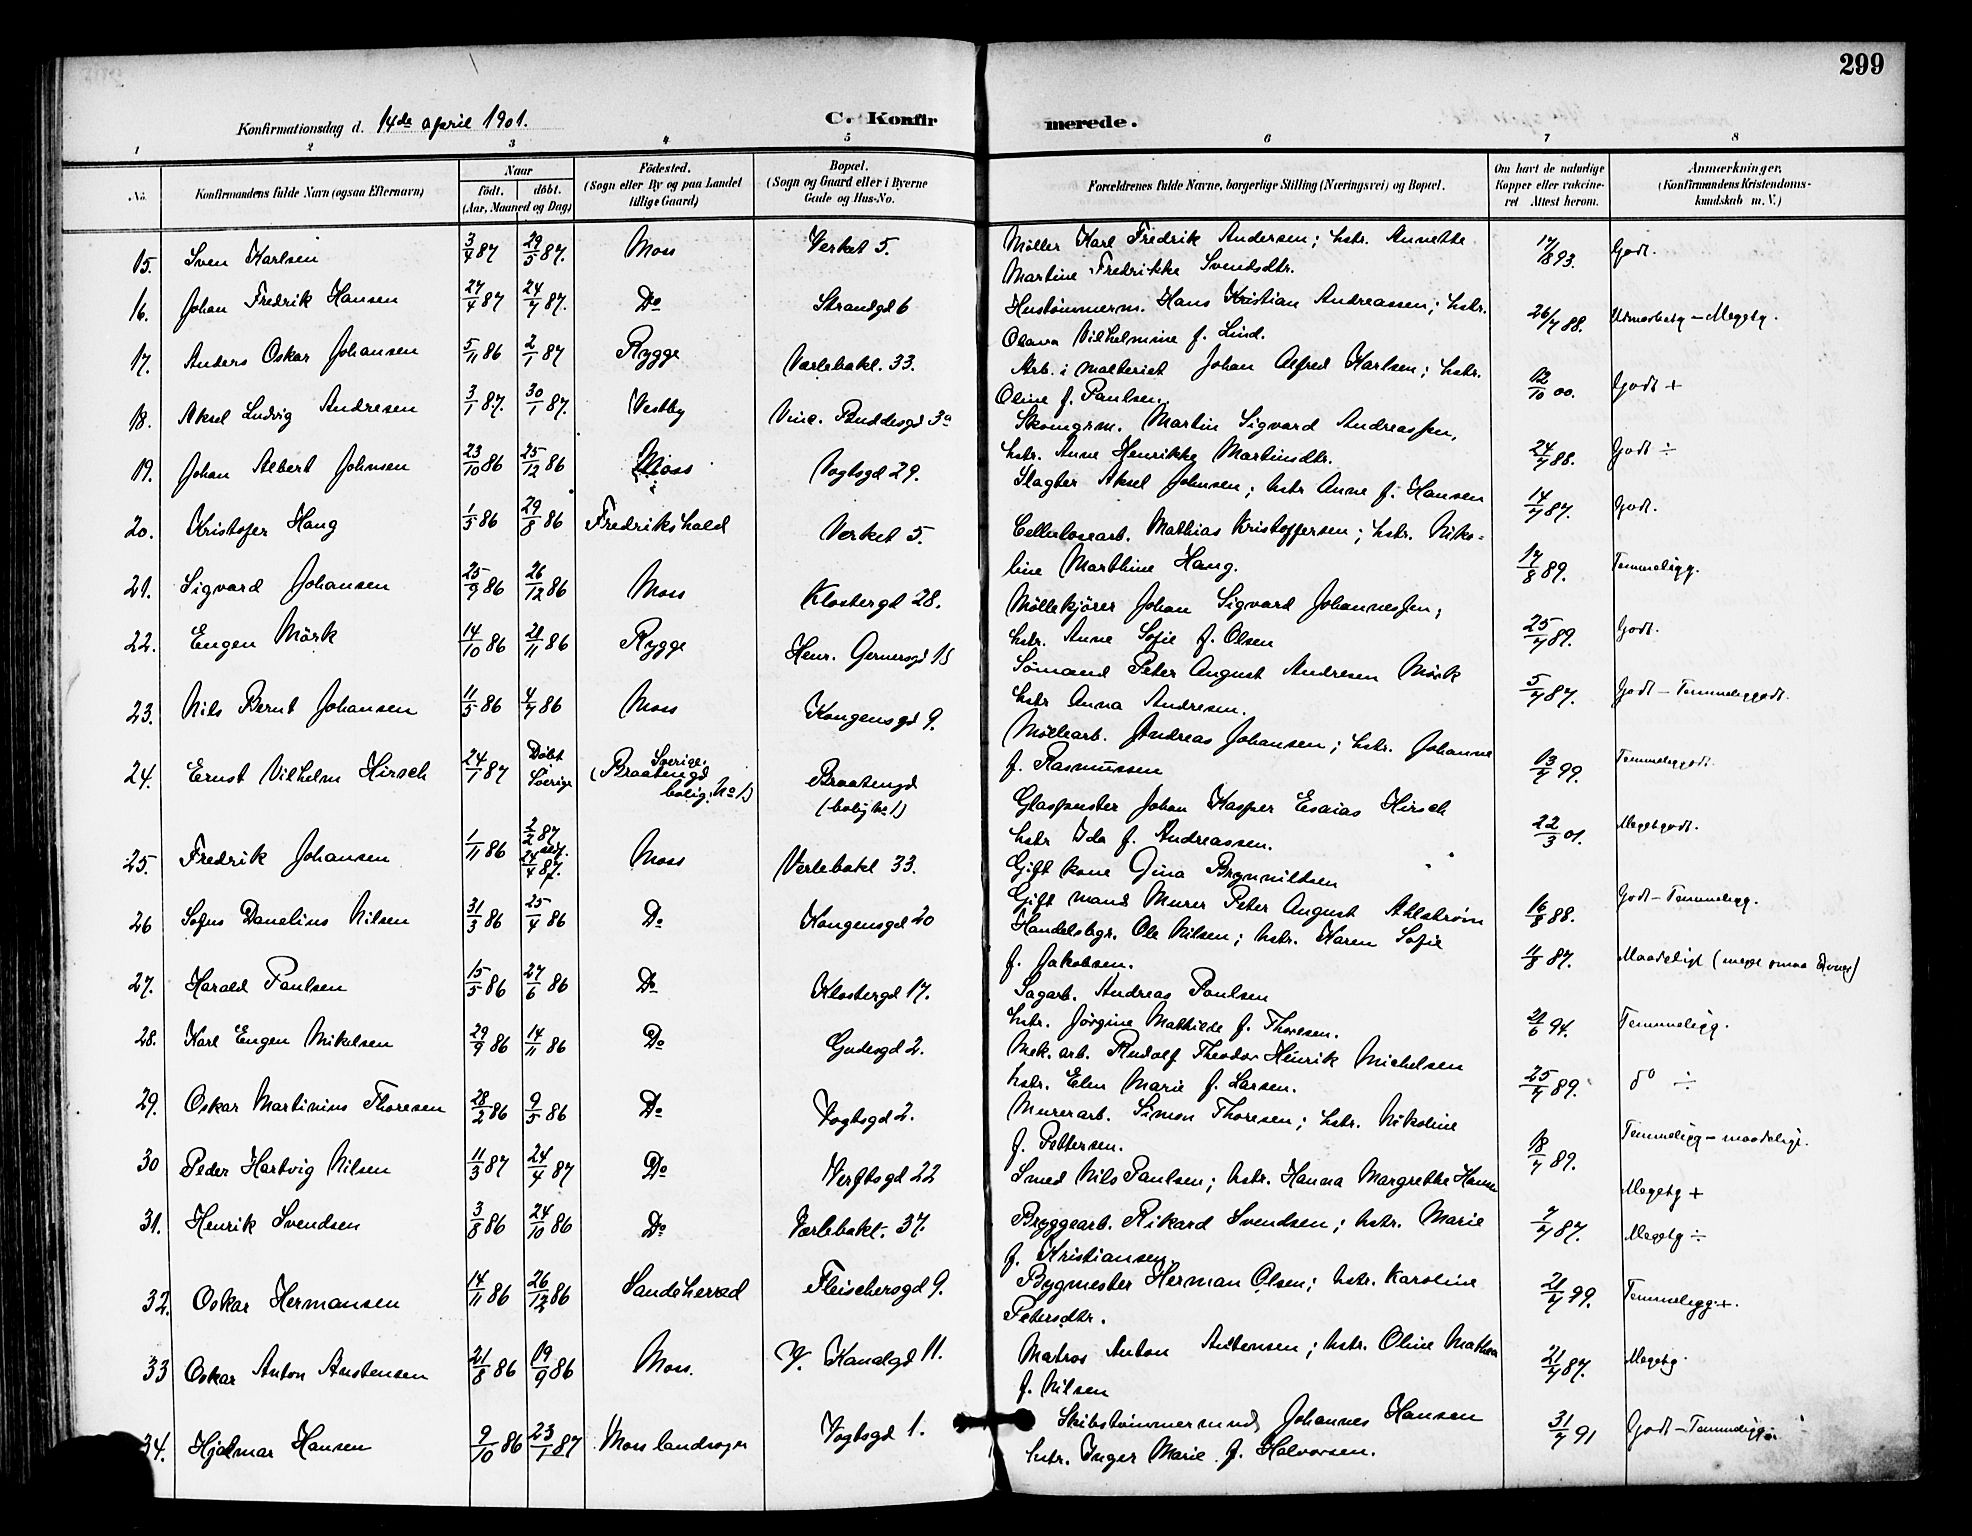 299
Konfirmationsdag d. 14de april 1901.
C. Konfirmerede.
1 2 3 4 5 6 7 8
No.
Konfirmandens fulde Navn (ogsaa Efternavn)
Naar
födt. döbt.
(Aar, Maaned og Dag)
Födested.
(Sogn eller By og paa Landet
tillige Gaard)
Bopæl.
(Sogn og Gaard eller i Byerne
Gade og Hus-No.
Forældrenes fulde Navne, borgerlige Stilling (Næringsvei) og Bopæl.
Om havt de naturlige
Kopper eller vakcine-
ret Attest herom.
Anmærkninger,
(Konfirmandens Kristendoms-
kundskab m. V.)
15. Sven Karlsen 3/4 87 29/5 87. Moss Verket 5. Möller Karl Fredrik Andersen; hstr. Annette
Martine Fredrikke Svendsdtr. 17/8 93. Godt.
16. Johan Fredrik Hansen 27/4 87 24/7 87. Do Strandgd 6 Hustömmerm. Hans Kristian Andreassen; hstr.
Olava Vilhelmine f. Lind. 26/7 88. Udmærketg – Megetg.
17. Anders Oskar Johansen 5/11 86 2/1 87 Rygge Værlebakl. 33. Arb. i malteriet Johan Alfred Karlsen; hstr.
Oline f. Paulsen. 12/10 00. Godt +
18. Aksel Ludvig Andresen 3/1 87. 30/1 87. Vestby Vinc. Buddesgd 3a Skomgrm. Martin Sigvard Andreassen,
hstr. Anne Henrikke Martinsdtr. 24/7 88. Godt ÷
19. Johan Albert Johnsen 23/10 86 25/12 86 Moss Vogtsgd 29. Slagter Aksel Johnsen; hstr Anne f. Hansen 14/7 87. Godt.
20. Kristofer Haug 1/5 86 29/8 86 Fredrikshald Verket 5. Cellulosearb. Mathias Kristoffersen; hstr. Niko-
line Marthine Haug. 17/8 89. Temmeligg.
21. Sigvard Johansen 25/9 86 26/12 86 Moss Klostergd 28. Möllekjörer Johan Sigvard Johannessen;
hstr. Anne Sofie f. Olsen 25/7 89. Godt.
22. Eugen Mörk 14/10 86 21/11 86 Rygge Henr. Gernersgd 15 Sömand Peter August Andresen Mörk
hstr Anna Andresen. 5/7 87. Godt – Temmeliggodt.
23. Nils Bernt Johansen 11/5 86 4/7 86 Moss Kongensgd 9. Möllearb. Andreas Johansen; hstr. Johanne
f. Rasmussen 13/7 99. Temmeliggodt.
24. Ernst Vilhelm Hirsch 24/1 87 Döbt i Sverige Sverige. (Braatengd bolig: No 1) Braatengd
(bolig No 1) Glaspuster Johan Kasper Esaias Hirsch
hstr Ida f. Andreassen. 22/3 01. Megetgodt.
25. Fredrik Johansen 1/11 86 2/2 87 24/4 87. Moss Verlebakl 33. Gift kone Gina Brynniltsen
Gift mand Murer Peter August Ahlström 16/8 88. Godt – Temmeligg.
26 Sofus Danelius Nilsen 31/3 86 25/4 86 Do Kongensgd 20 Handelsbgr. Ole Nilsen; hstr. Karen Sofie
f. Jakobsen. 11/8 87. Maadeligt
27. Harald Paulsen 15/5 86 27/6 86 Do Klostergd 17. Sagarb. Andreas Paulsen
hstr. Jörgine Mathilde f. Thoresen. 21/6 94. Temmeligg.
28. Karl Eugen Mikelsen 29/9 86 14/11 86 Do Gudesgd 2. Mek. arb. Rudolf Theodor Henrik Michelsen
hstr. Elen Marie f. Larsen. 25/7 89. do ÷
29. Oskar Martinius Thoresen 28/2 86 9/5 86 Do Vogtsgd 2. Murerarb. Simon Thoresen; hstr. Nikoline
f. Pettersen. 18/7 89. Temmeligg – maadeligt.
30 Peder Hartvig Nilsen 11/3 87 24/4 87 Do Verftsgd 22 Smed Nils Paulsen; hstr. Hanna Margrethe Hansen Megetg +
31. Henrik Svendsen 3/8 86 24/10 86 Do Værlebakl. 37. Bryggearb. Rikard Svendsen; hstr. Marie
f. Kristiansen. 7/7 87. Megetg ÷
32. Oskar Hermansen 14/11 86 26/12 86 Sandeherred Fleischersgd 9. Bygmester Herman Olsen; hstr. Karoline
Petersdtr. 21/7 99. Temmeligg +.
33 Oskar Anton Anstensen 21/8 86 19/9 86 Moss. N. Kanalgd 11. Matros Anton Anstensen; hstr. Oline Mathea
f. Nilsen 21/7 87. Megetg.
34. Hjalmar Hansen 9/10 86 23/1 87 Moss landsogn Vogtsgd 1. Skibstömmermand Johannes Hansen
hstr. Inger Marie f. Halvorsen. 31/7 91 Godt – Temmeligg